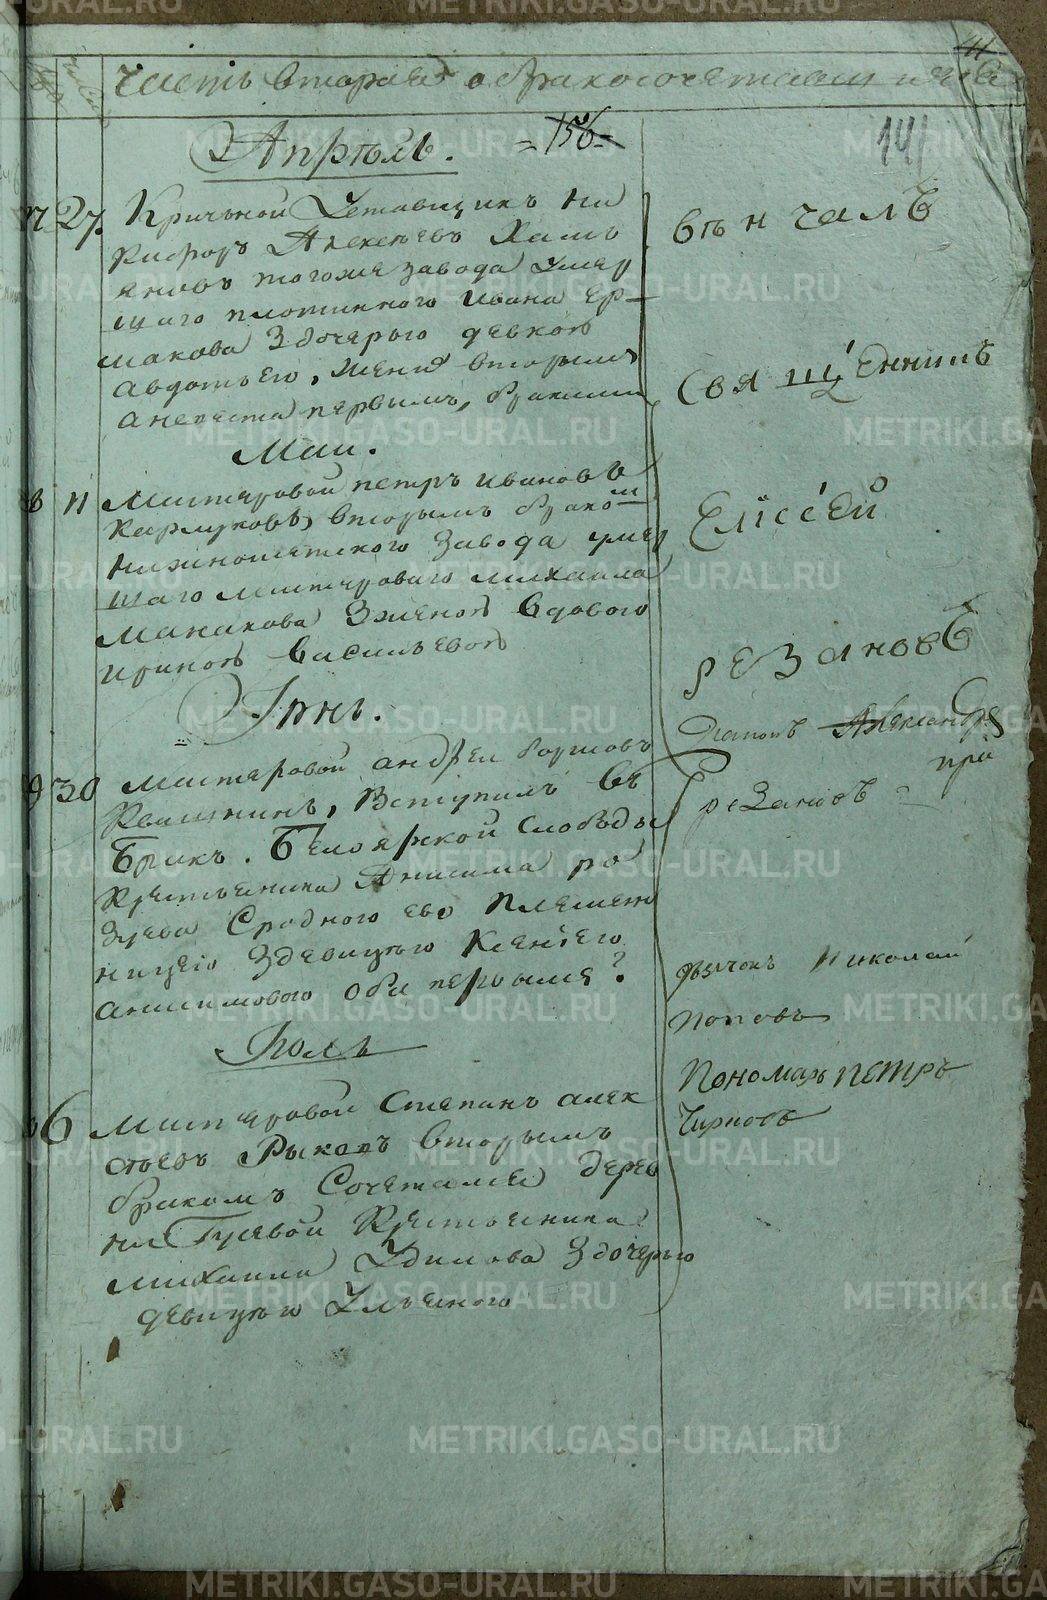 часть вторая о бракосочетании
Апрѣль.
=156=
141
27. Кричьной Уставщикъ Ни
кифоръ Алексѣевъ Хамь
яновъ тогоже завода умер
шаго плотинного Ивана Ер
макова Здочерью девкою
Авдотьею, женихъ вторымъ
аневѣста первымъ, бракими
Маи.
11 Мастеровой петръ ивановъ
Кармуковъ вторымъ бракомъ
завода умер
шаго мастероваго михаила
Манакова Зженой вдовою
ириной васильевой
Іюнь.
30 мастеровой андреи борисовъ
Вступилъ въ
бракъ. Белоярской слободы
Крестьянина Анисима ро
Зуева Сродного ево племян
ницею Здевицею Ксенiею
анисимовою оба первымя?
Июль
6 мастеровой Степанъ алек
сѣевъ Рыковъ вторымъ
бракомъ Сочетался дерев
ни Гусевой Крестьянина
михаила Удилова Здочерью
девицею Ульяною
вѣнчалъ
Священникъ
Елiсей
резановъ
диаконъ Александръ
резановъ
дьячокъ Николай
поповъ
Пономарь петръ
Чирковъ
METRIKI.GASO-URAL.RU